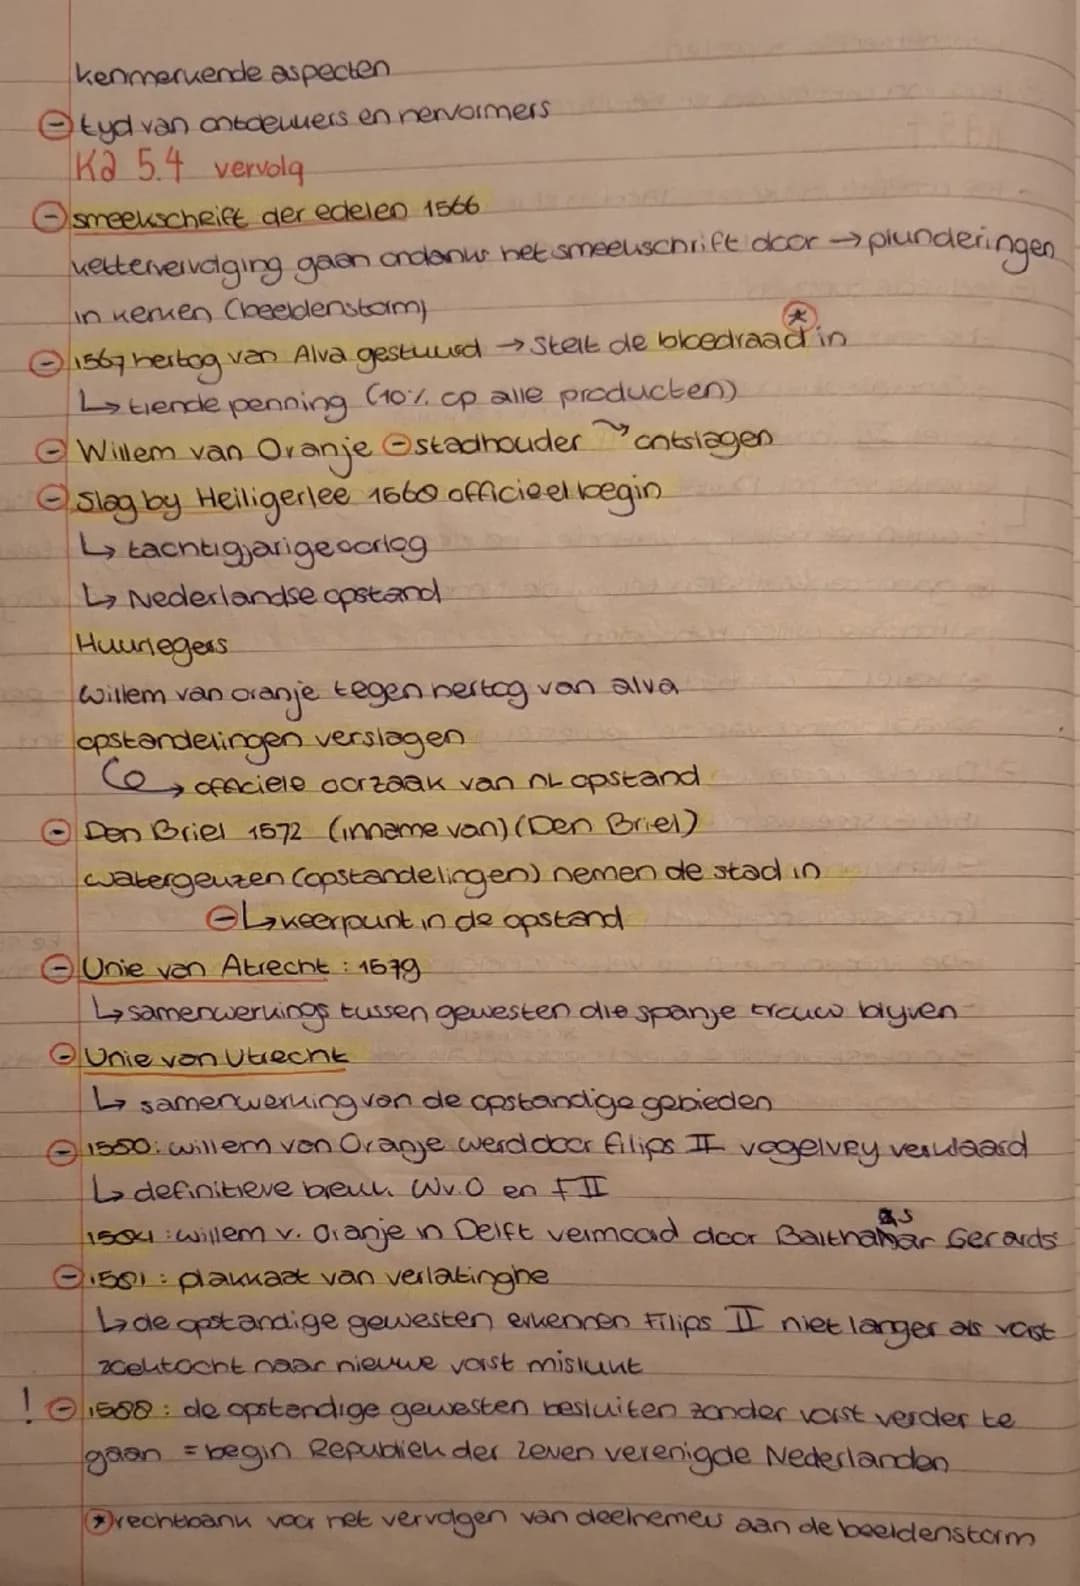 kenmerkende aspecten
⊖ tyd van ontdekkers en hervormers
Ka 5.4 vervolg
⊖ smeekschrift der edelen 1566
kettervervolging gaan ondanks het smeekschrift door → plunderingen
in kerken (beeldenstorm)
⊖ 1567 hertog van Alva gestuurd → stelt de bloedraad in *
↳ tiende penning (10% op alle producten)
⊖ Willem van Oranje ⊖ stadhouder → ontslagen
⊖ Slag by Heiligerlee 1568 officieel begin
↳ tachtigjarige oorlog
↳ Nederlandse opstand
Huurlegers
Willem van oranje tegen hertog van alva
opstandelingen verslagen
↳ officiele oorzaak van NL opstand
⊖ Den Briel 1572 (inname van) (Den Briel)
watergeuzen (opstandelingen) nemen de stad in
⊖ ↳ keerpunt in de opstand
⊖ Unie van Atrecht : 1579
↳ samenwerkings tussen gewesten die spanje trouw blyven
⊖ Unie van Utrecht
↳ samenwerking van de opstandige gebieden
⊖ 1580: willem van Oranje werd door filips II vogelvry verklaard
↳ definitieve breuk WvO en FII
1584 : willem v. Oranje in Delft vermoord door Balthasar Gerards
⊖ 1581 : plakkaat van verlatinghe
↳ de opstandige gewesten erkennen Filips II niet langer als vorst
zoektocht naar nieuwe vorst mislukt
! ⊖ 1588 : de opstandige gewesten besluiten zonder vorst verder te
gaan = begin Republiek der Zeven verenigde Nederlanden
* rechtbank voor het vervolgen van deelnemers aan de beeldenstorm